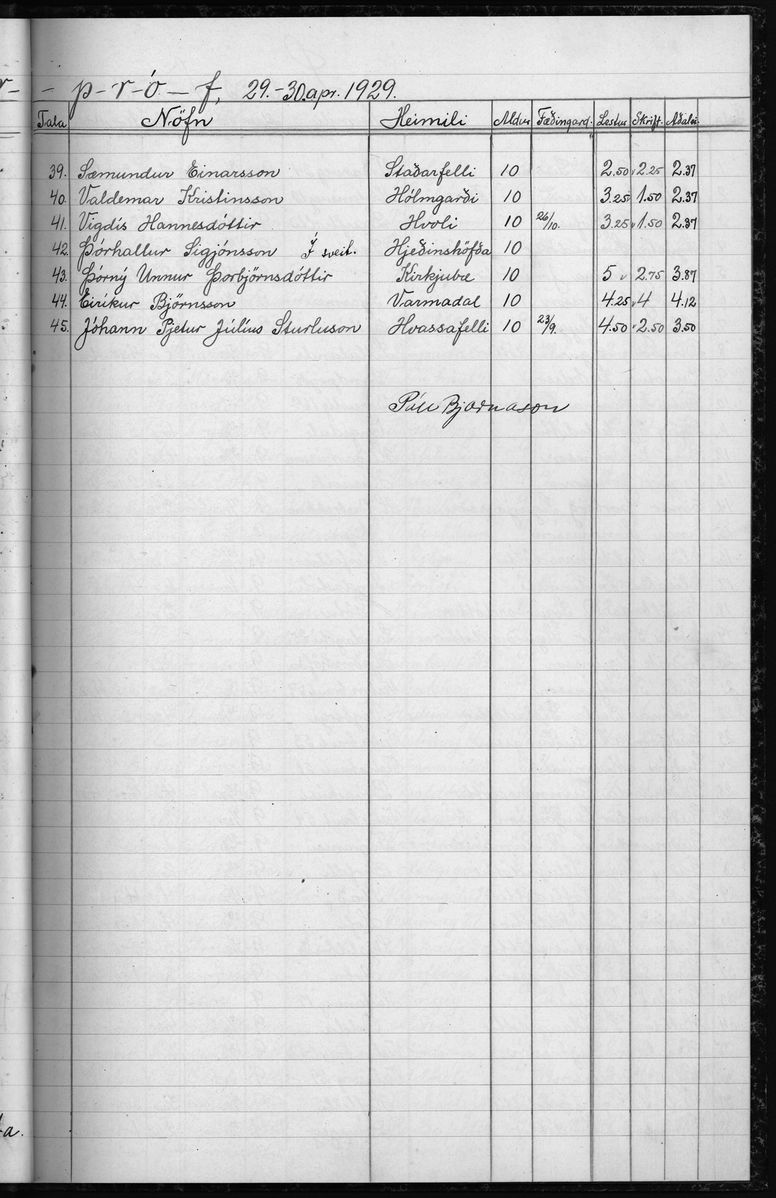 r- - p-r-ó-f, 29.-30.apr. 1929.
Tala Nöfn Heimili Aldur Fæðingard. Lestur Skrift. Aðalei.
39. Sæmundur Einarsson Staðarfelli 10 2.50 2.25 2.37
40. Valdemar Kristinsson Hólmgarði 10 3.25 1.50 2.37
41. Vigdís Hannesdóttir Hvoli 10 26/10. 3.25 1.50 2.37
42. Þórhallur Sigjónsson Í sveit. Hjeðinshöfða 10
43. Þórný Unnur Þorbjörnsdóttir Kirkjubæ 10 5 2.75 3.87
44. Eiríkur Björnsson Varmadal 10 4.25 4 4.12
45. Jóhann Pjetur Júlíus Sturluson Hvassafelli 10 23/9. 4.50 2.50 3.50
Páll Bjarnason
a.